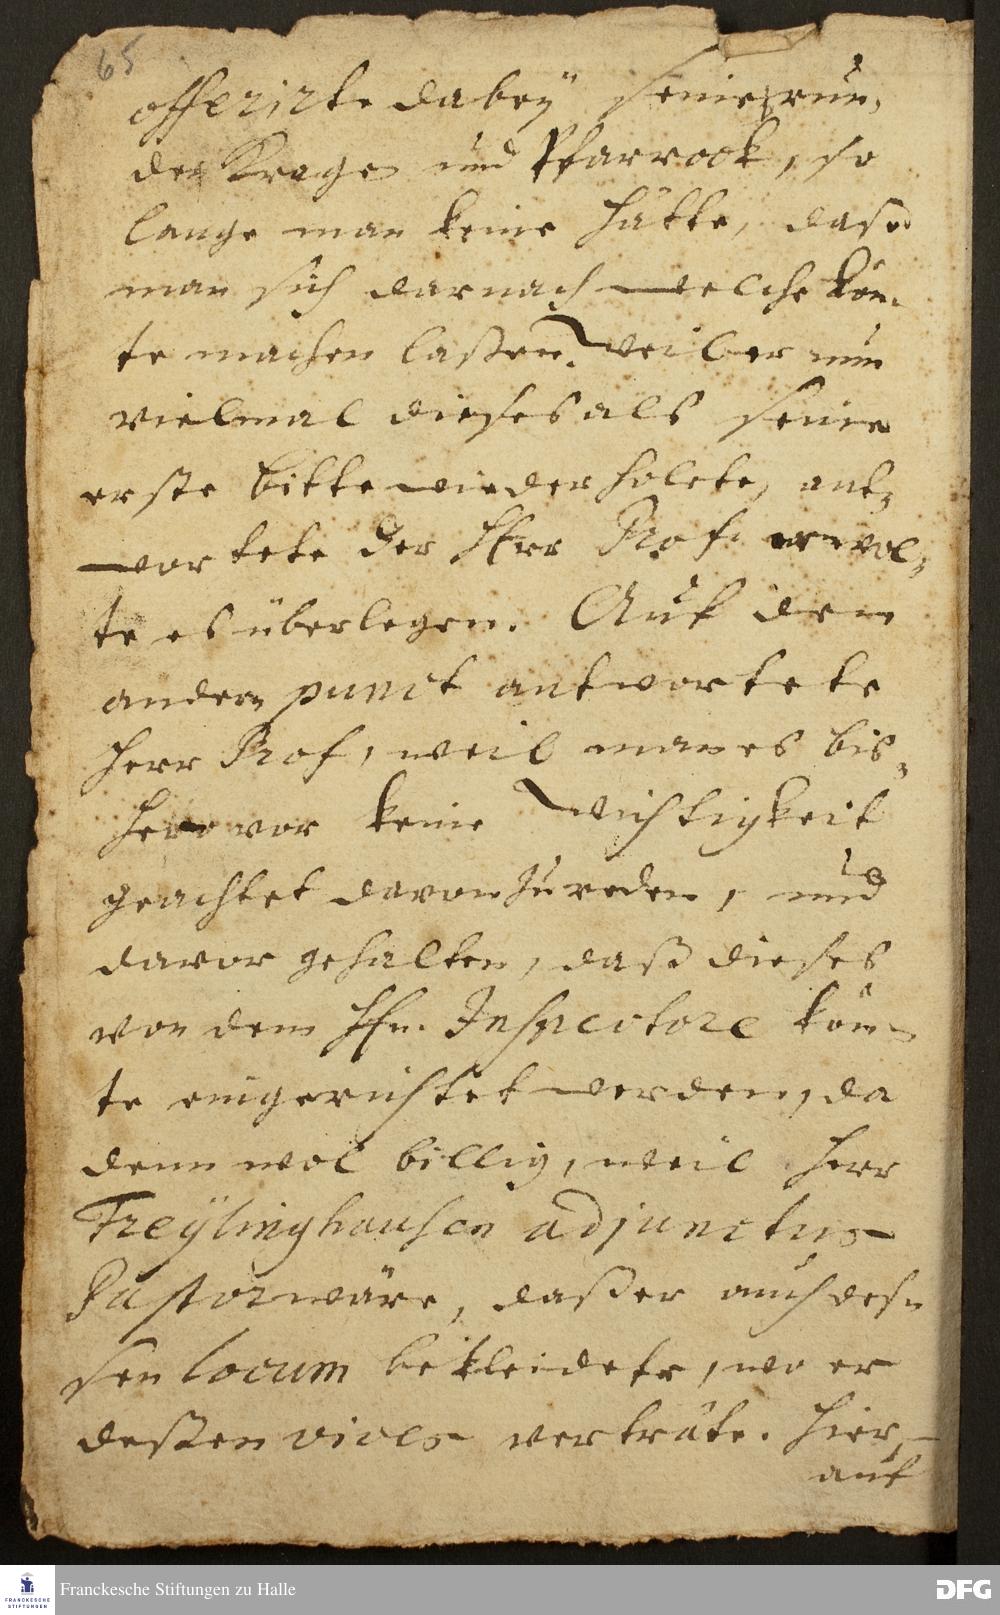 65
offerirte dabey seine run,
de Krage und Pfarrock, so
lange man keine hätte, dass
man sich darnach welche kön-
te machen laßen. Weil er nun
vielmal dieses als seine
erste bitte wiederholete, ant-
wortete der Herr Prof. er wol-
te es überlegen. Auf den
andern punct antwortete
Herr Prof, weil man es bis-
hero vor keine Wichtigkeit
geachtet davon zu reden, und
davor gehalten, daß dieses
von dem Hn. Inspectore kön-
te eingerichtet werden, da
denn wol billig, weil Herr
Freÿlinghausen adjunctus
Pastor wäre, daß er auch des-
sen locum bekleidete, wo er
deßen vices verträte. Hier-
auf
Franckesche Stiftungen zu Halle
FRANCKESCHE
STIFTUNGEN
DFG